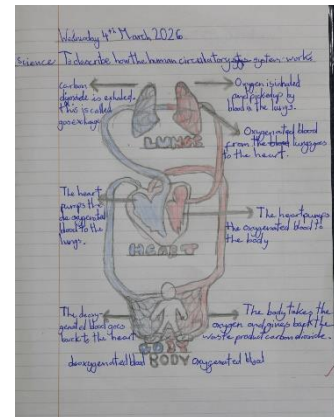 Wednesday 4th March 2026
Science: To describe how the human circulatory system works
Carbon
dioxide is exhaled.
This is called
gas exchage
Oxygen is inhaled
and picked up by
blood in the lungs.
LUNGS
Oxygenated blood
from the blood lungs goes
to the heart.
The heart
pumps the
deoxygenated
blood to the
lungs.
The heart pumps
the oxygenated blood to
the body
HEART
The deoxy-
genated blood goes
back to the heart
The body takes the
oxygen and gives back the
waste product carbon dioxide.
BODY
deoxygenated blood BODY oxygenated blood